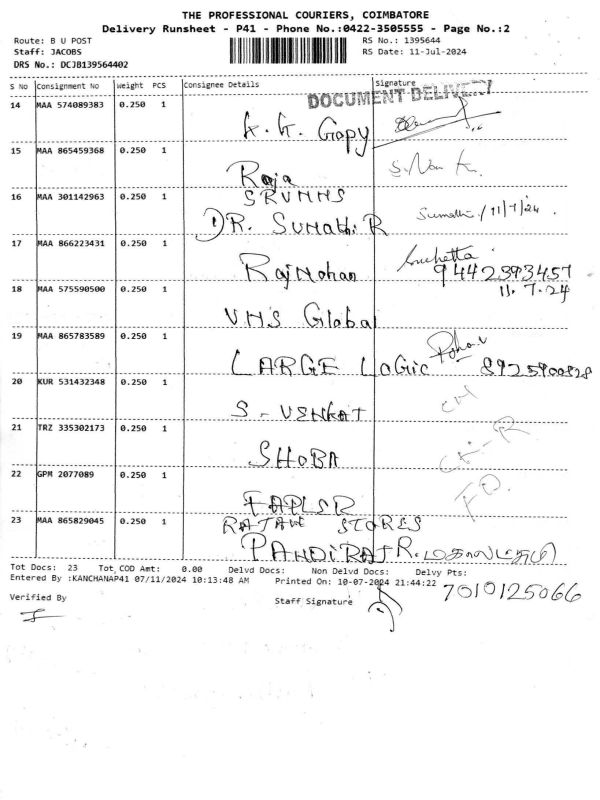 THE PROFESSIONAL COURIERS, COIMBATORE
Delivery Runsheet - P41 - Phone No.:0422-3505555 - Page No.:2
Route: B U POST
RS No.: 1395644
Staff: JACOBS
RS Date: 11-Jul-2024
DRS No.: DCJB139564402
S No Consignment No Weight PCS Consignee Details Signature
DOCUMENT DELIVE
14 MAA 574089383 0.250 1
K. G. Gopy
15 MAA 865459368 0.250 1
Raja
16 MAA 301142963 0.250 1 SRVMHS
DR. SUMathi R Sumathi 11/7/24
17 MAA 866223431 0.250 1
RajMohan 9442393457
18 MAA 575590500 0.250 1 11.7.24
VMS Global
19 MAA 865783589 0.250 1
LARGE LOGIC 8925900828
20 KUR 531432348 0.250 1
S - VENKAT
21 TRZ 335302173 0.250 1
SHOBA
22 GPM 2077089 0.250 1
23 MAA 865829045 0.250 1 STORES
PANDIRAJ R.
Tot Docs: 23 Tot COD Amt: 0.00 Delvd Docs: Non Delvd Docs: Delvy Pts:
Entered By :KANCHANAP41 07/11/2024 10:13:48 AM Printed On: 10-07-2024 21:44:22
7010125066
Verified By
Staff Signature